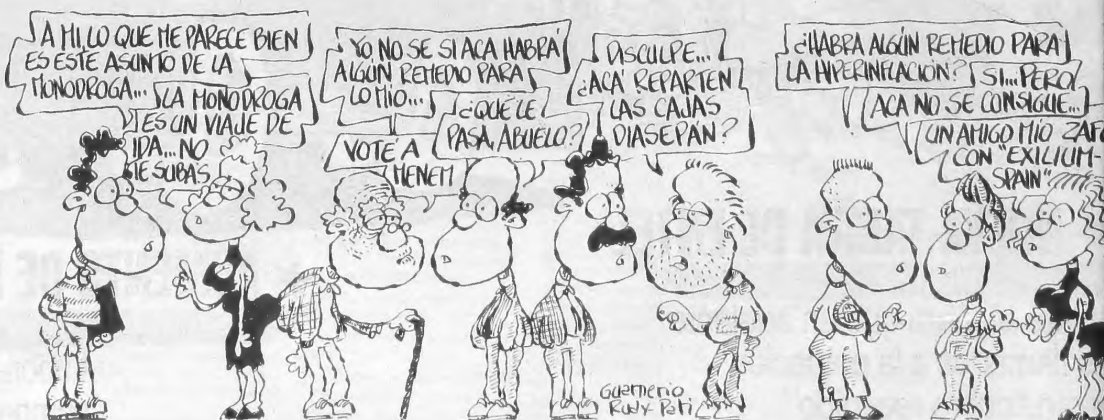 A MI LO QUE ME PARECE BIEN
ES ESTE ASUNTO DE LA
MONODROGA...
LA MONODROGA
ES UN VIAJE DE
IDA... NO
TE SUBAS
YO NO SE SI ACA HABRÁ
ALGÚN REMEDIO PARA
LO MIO...
¿QUÉ LE
PASA, ABUELO?
VOTÉ A
MENEM
DISCULPE...
¿ACÁ REPARTEN
LAS CAJAS
DIASEPÁN?
¿HABRA ALGÚN REMEDIO PARA
LA HIPERINFLACIÓN?
SI... PERO
ACA NO SE CONSIGUE...
UN AMIGO MIO ZAFÓ
CON "EXILIUM-
SPAIN"
Guarnerio
Rudy Pati